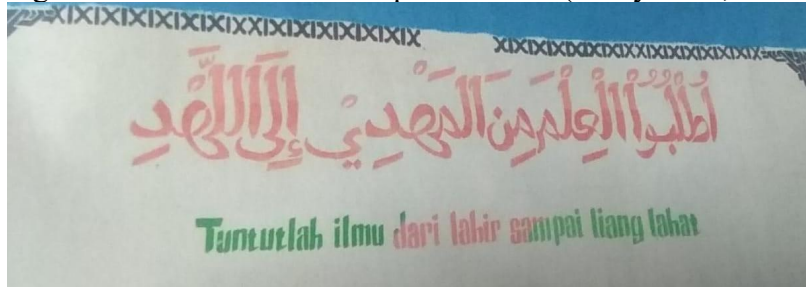 اُطْلُبُوْا الْعِلْمَ مِنَ الْمَهْدِيْ إِلَى اللَّهْدِ
Tuntutlah ilmu dari lahir sampai liang lahat